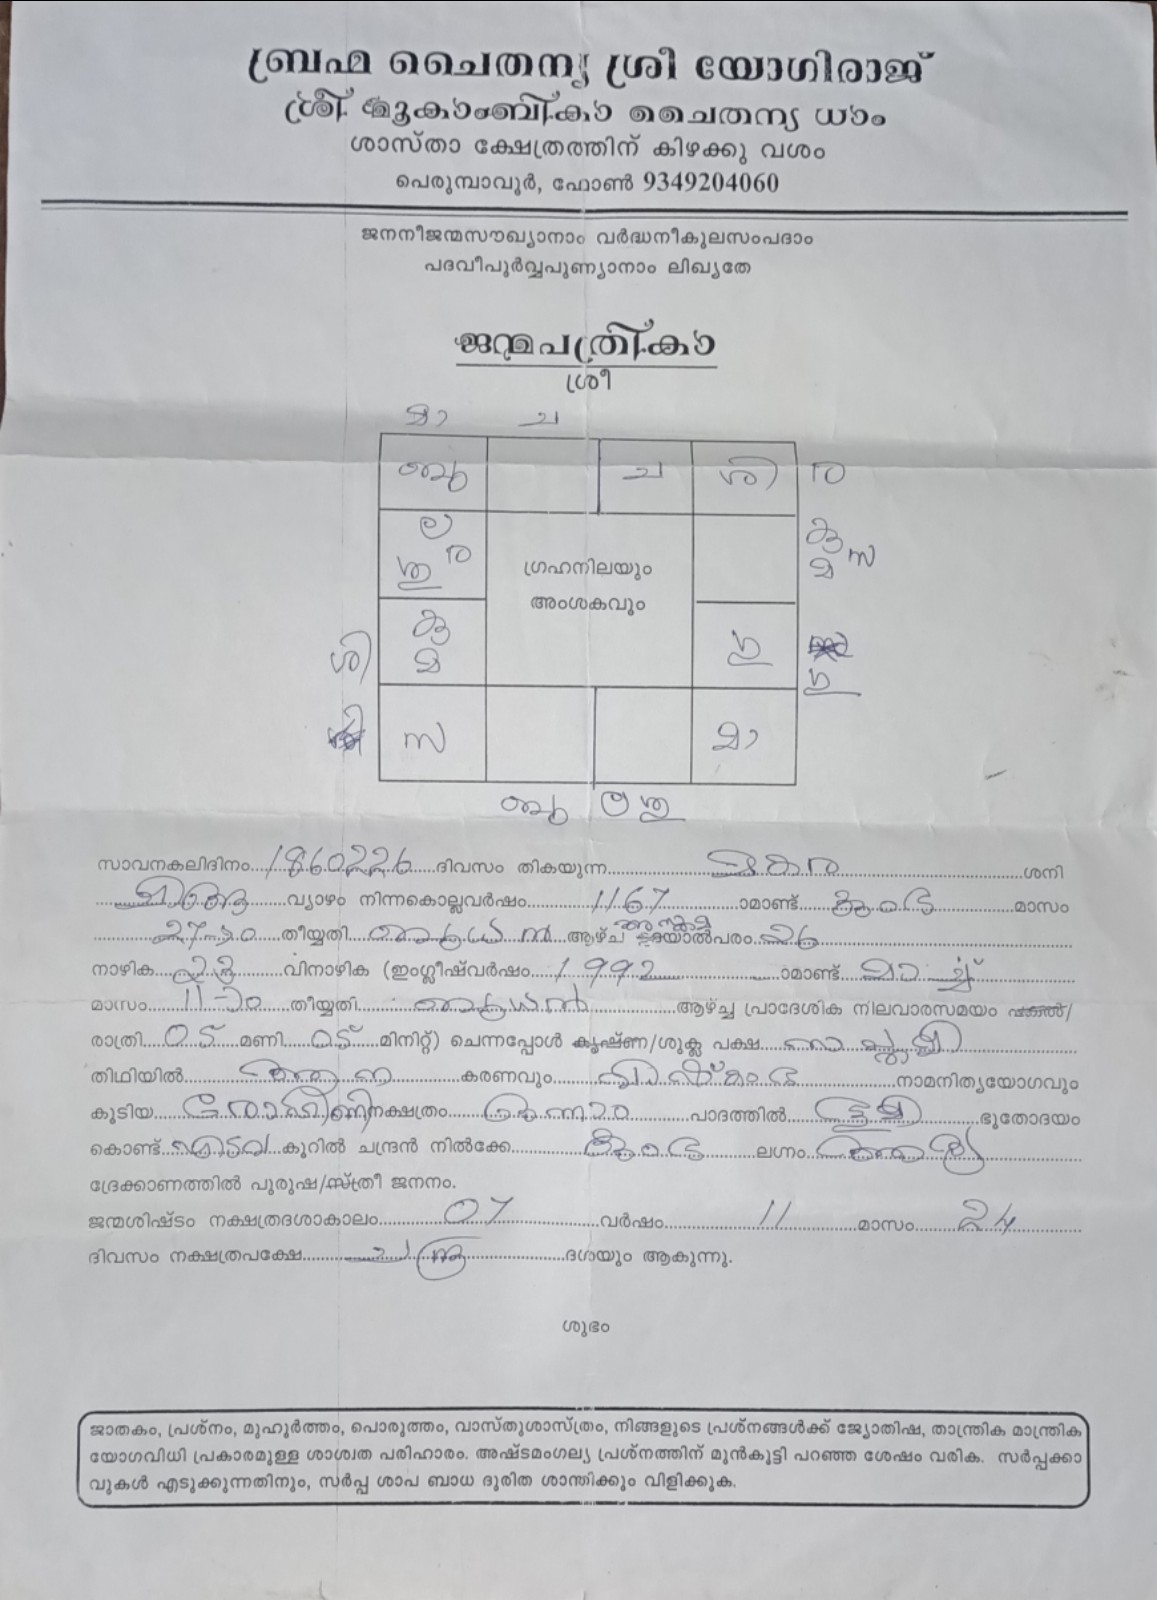 ബ്രഹ്മ ചൈതന്യ ശ്രീ യോഗിരാജ്
ശ്രീ മൂകാംബികാ ചൈതന്യ ധാം
ശാസ്താ ക്ഷേത്രത്തിന് കിഴക്കു വശം
പെരുമ്പാവൂർ, ഫോൺ 9349204060
ജനനീജന്മസൗഖ്യാനാം വർദ്ധനീകുലസംപദാം
പദവീപൂർവ്വപുണ്യാനാം ലിഖ്യതേ
ജന്മപത്രികാ
ശ്രീ
മാ ച
ബു ച ശി ര
ല ര ശു ഗ്രഹനിലയും കു മ സ
അംശകവും
ശി കു മ ഗു ഗു
സ മാ
ബു ല ശു
സാവനകലിദിനം 1860226 ദിവസം തികയുന്ന മകരം ശനി
ചിങ്ങ വ്യാഴം നിന്നകൊല്ലവർഷം 1167 ാമാണ്ട് കുംഭ മാസം
27-ാം തീയ്യതി ബുധൻ ആഴ്ച അസ്തമിച്ചാൽപരം 26
നാഴിക 23 വിനാഴിക (ഇംഗ്ലീഷ്‌വർഷം 1992 ാമാണ്ട് മാർച്ച്
മാസം 11-ാം തീയ്യതി ബുധൻ ആഴ്ച്ച പ്രാദേശിക നിലവാരസമയം പകൽ/
രാത്രി 05 മണി 05 മിനിറ്റ്) ചെന്നപ്പോൾ കൃഷ്ണ/ശുക്ല പക്ഷ സപ്തമി
തിഥിയിൽ കരണവും വിഷ്കംഭ നാമനിത്യയോഗവും
കൂടിയ രോഹിണി നക്ഷത്രം ഒന്നാം പാദത്തിൽ ഭൂമി ഭൂതോദയം
കൊണ്ട് എടവ കൂറിൽ ചന്ദ്രൻ നിൽക്കേ കുംഭ ലഗ്നം
ദ്രേക്കാണത്തിൽ പുരുഷ/സ്ത്രീ ജനനം.
ജന്മശിഷ്ടം നക്ഷത്രദശാകാലം 07 വർഷം 11 മാസം 24
ദിവസം നക്ഷത്രപക്ഷേ ചന്ദ്ര ദശയും ആകുന്നു.
ശുഭം
ജാതകം, പ്രശ്നം, മുഹൂർത്തം, പൊരുത്തം, വാസ്തുശാസ്ത്രം, നിങ്ങളുടെ പ്രശ്നങ്ങൾക്ക് ജ്യോതിഷ, താന്ത്രിക മാന്ത്രിക
യോഗവിധി പ്രകാരമുള്ള ശാശ്വത പരിഹാരം. അഷ്ടമംഗല്യ പ്രശ്നത്തിന് മുൻകൂട്ടി പറഞ്ഞ ശേഷം വരിക. സർപ്പക്കാ
വുകൾ എടുക്കുന്നതിനും, സർപ്പ ശാപ ബാധ ദുരിത ശാന്തിക്കും വിളിക്കുക.